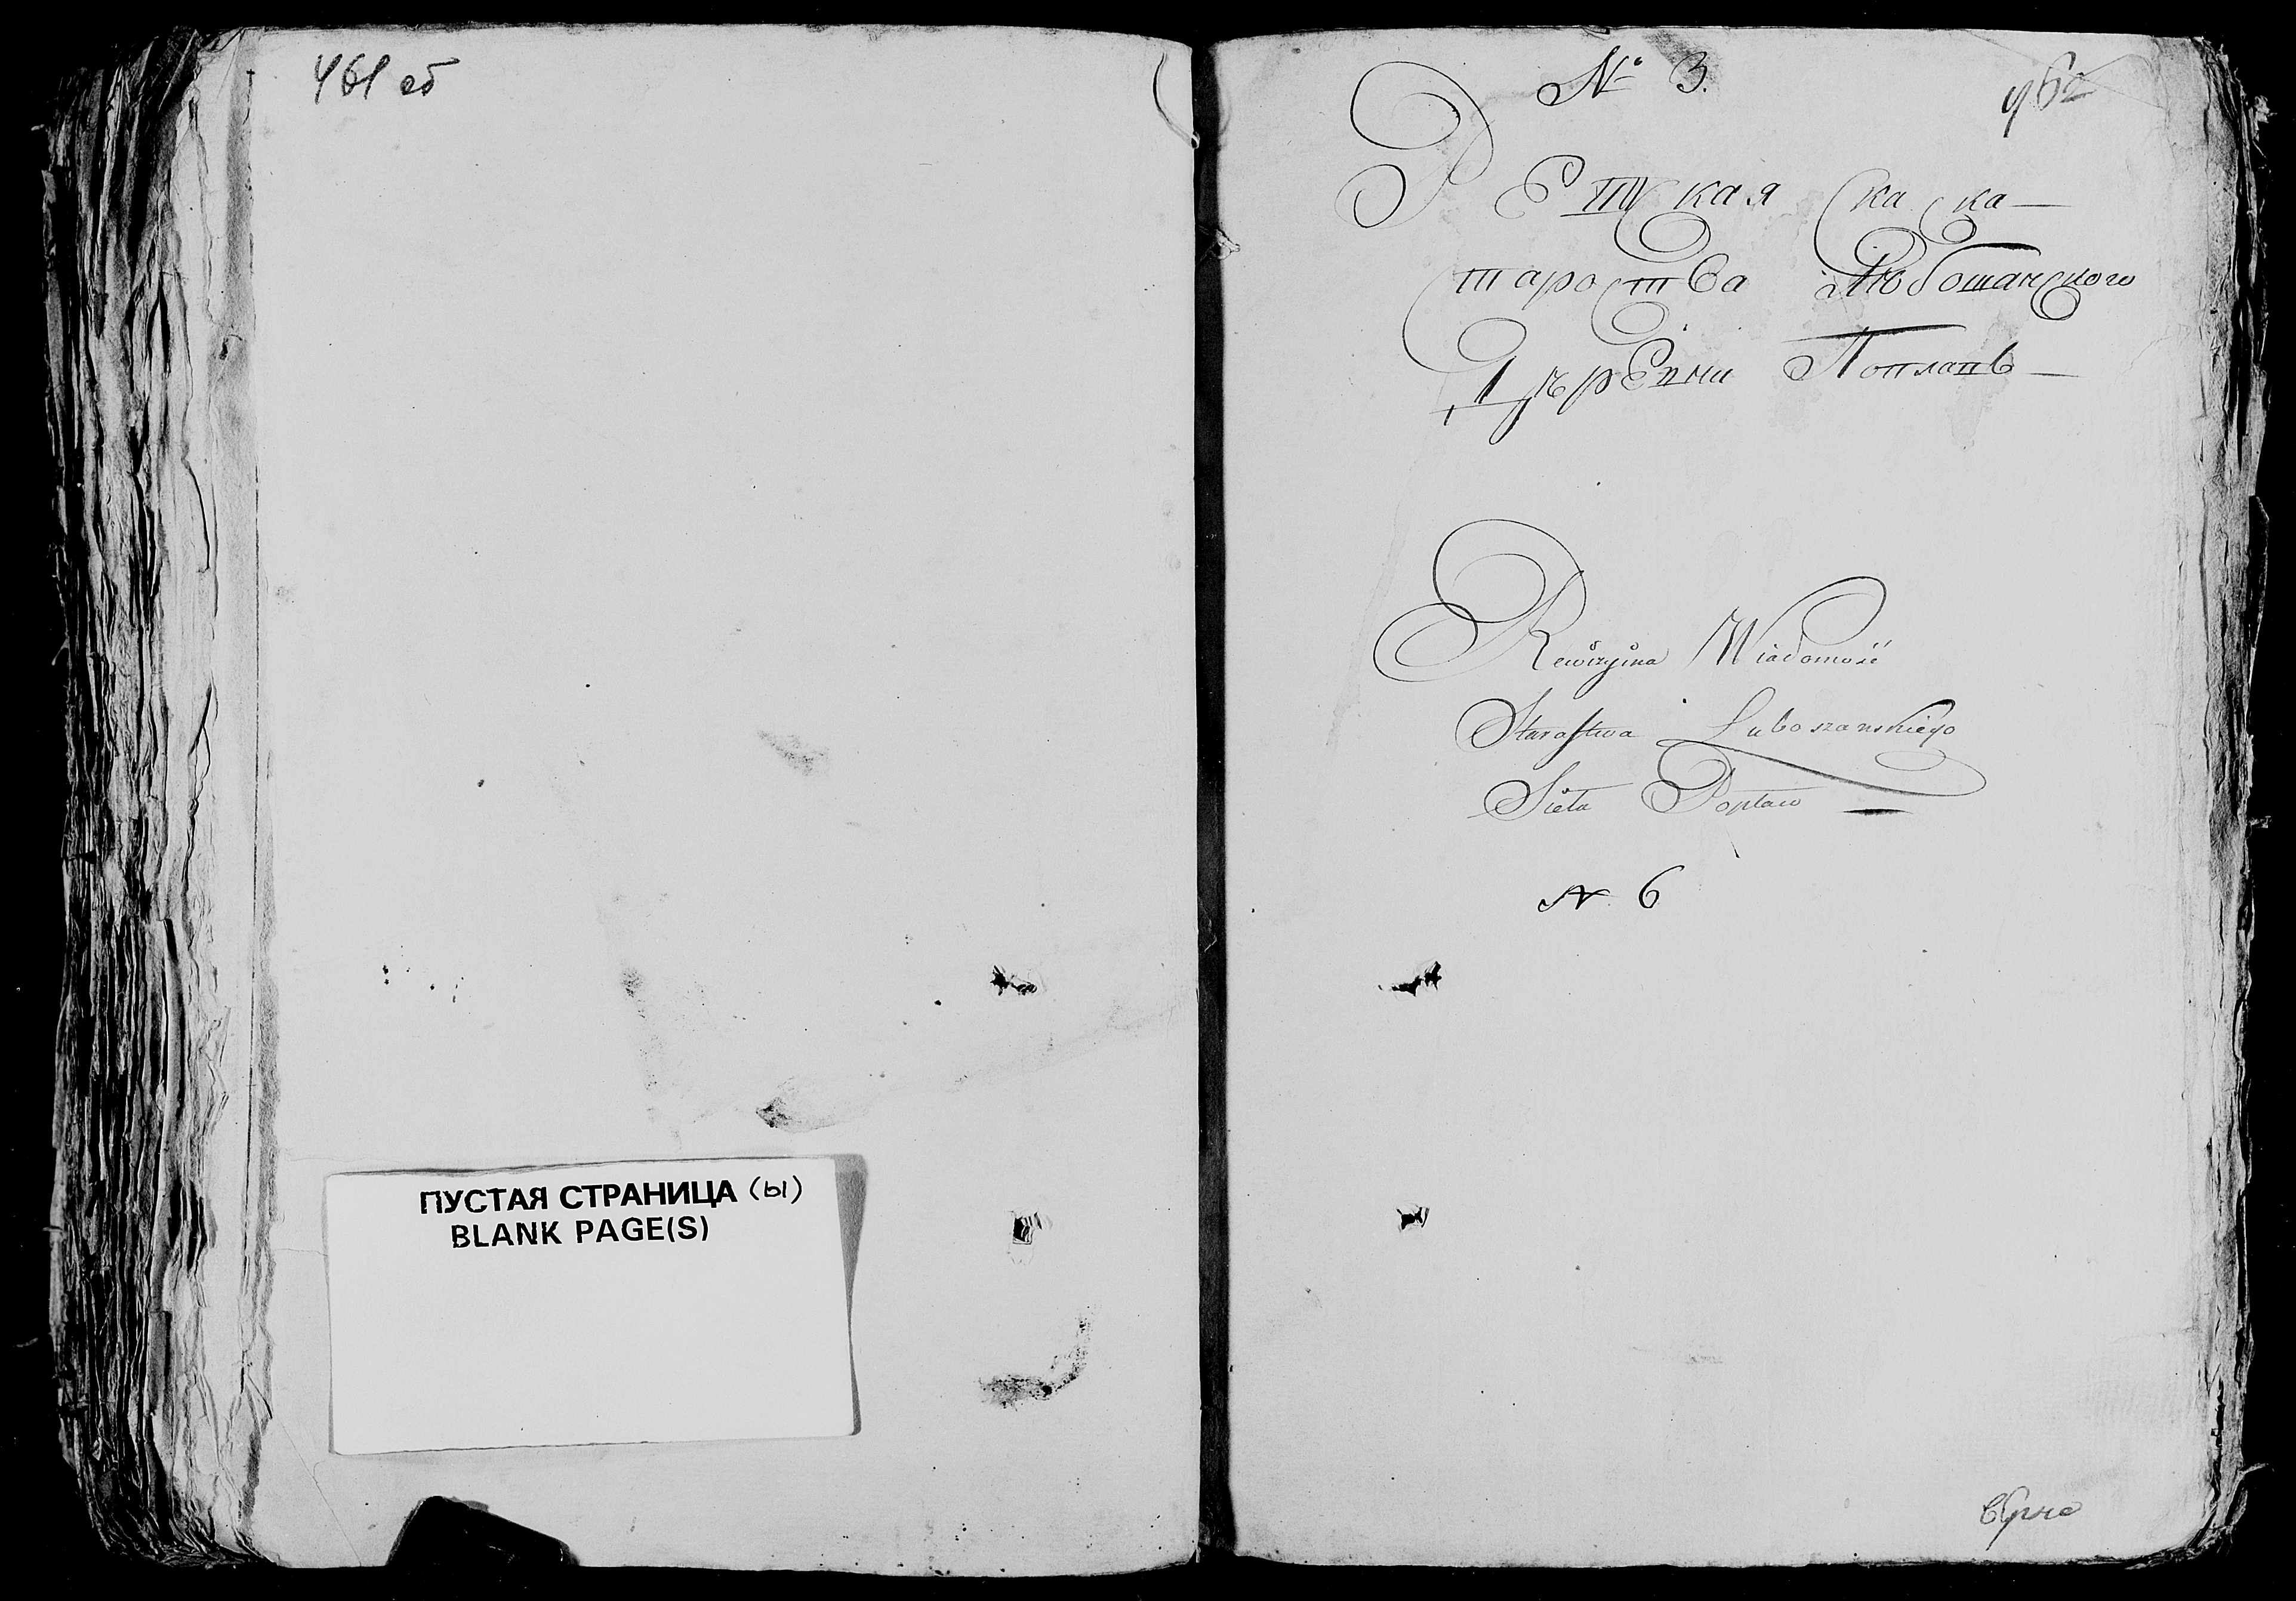 461 об
ПУСТАЯ СТРАНИЦА (Ы)
BLANK PAGE(S)
№ 3.
462
Скаска
Староства Любошанского
Деревни Поплавъ
Rewizyina Wiadomość
Starostwa Luboszanskiego
Sieła Popław
N. 6